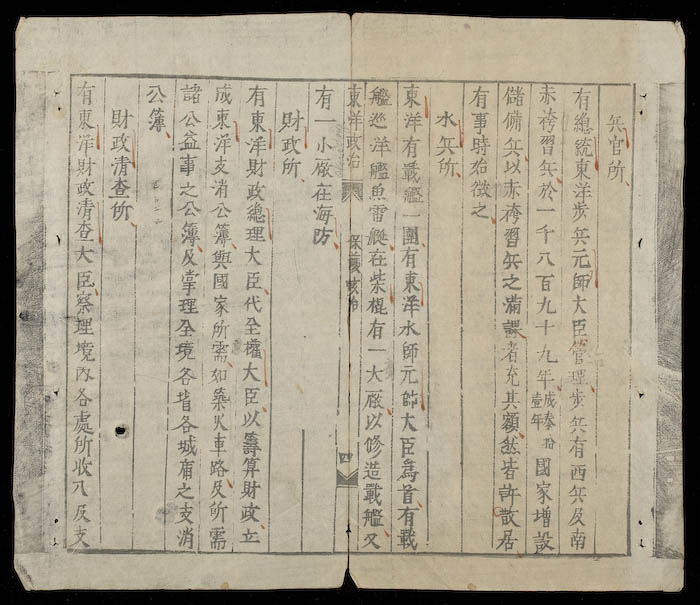 兵官所
有總統東洋步兵元帥大臣管理步兵有西兵及南
赤袴習兵於一千八百九十九年成泰拾壹年國家增設
儲備兵以赤袴習兵之滿課者充其額然皆許散居
有事時始徵之
水兵所
東洋有戰艦一團有東洋水師元帥大臣為首有戰
艦巡洋艦魚雷艇在柴棍有一大廠以修造戰艦又
東洋政治 保護 四
有一小廠在海防
財政所
有東洋財政總理大臣代全權大臣以籌算財政立
成東洋支消公簿與國家所需如築火車路及所需
諸公益事之公簿及掌理全境各省各城庯之支消
公簿
財政清查所
有東洋財政清查大臣察理境內各處所收入及支